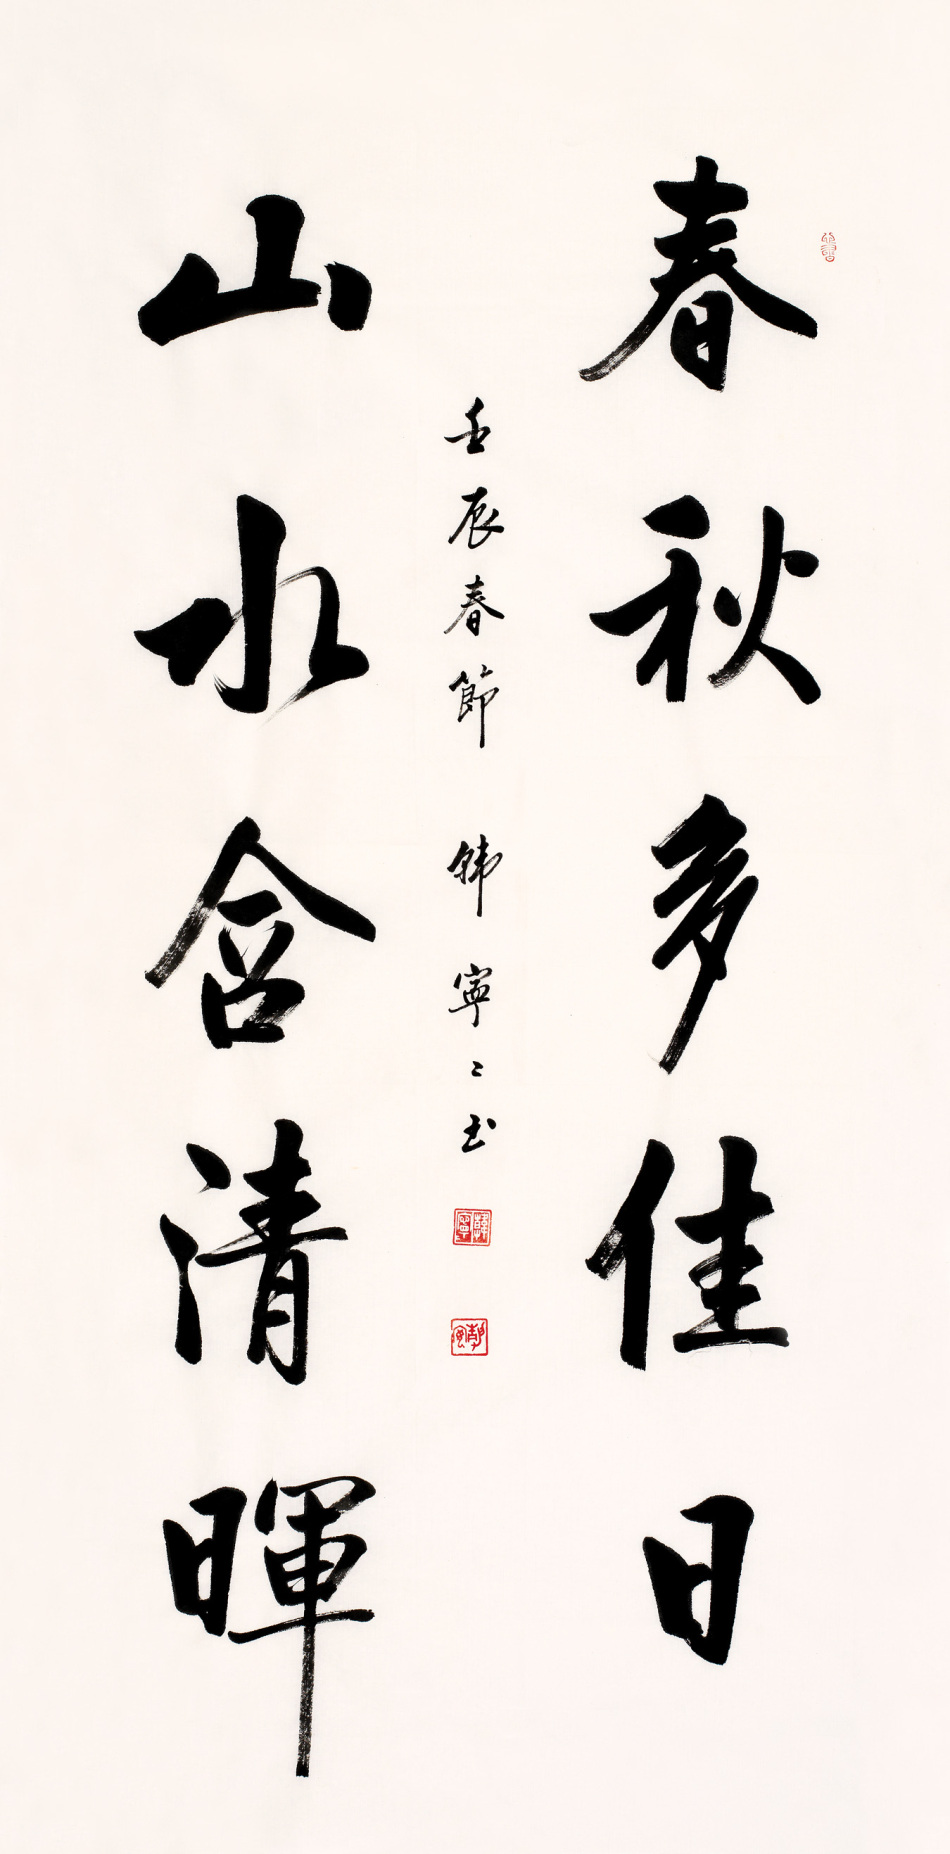 春秋多佳日
山水含清暉
壬辰春節 韓寧寧書
韓寧